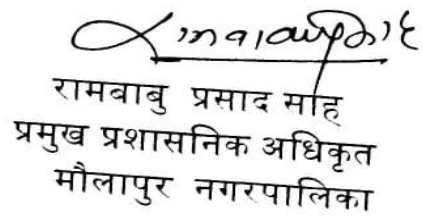 रामबाबु प्रसाद साह
प्रमुख प्रशासनिक अधिकृत
मौलापुर नगरपालिका